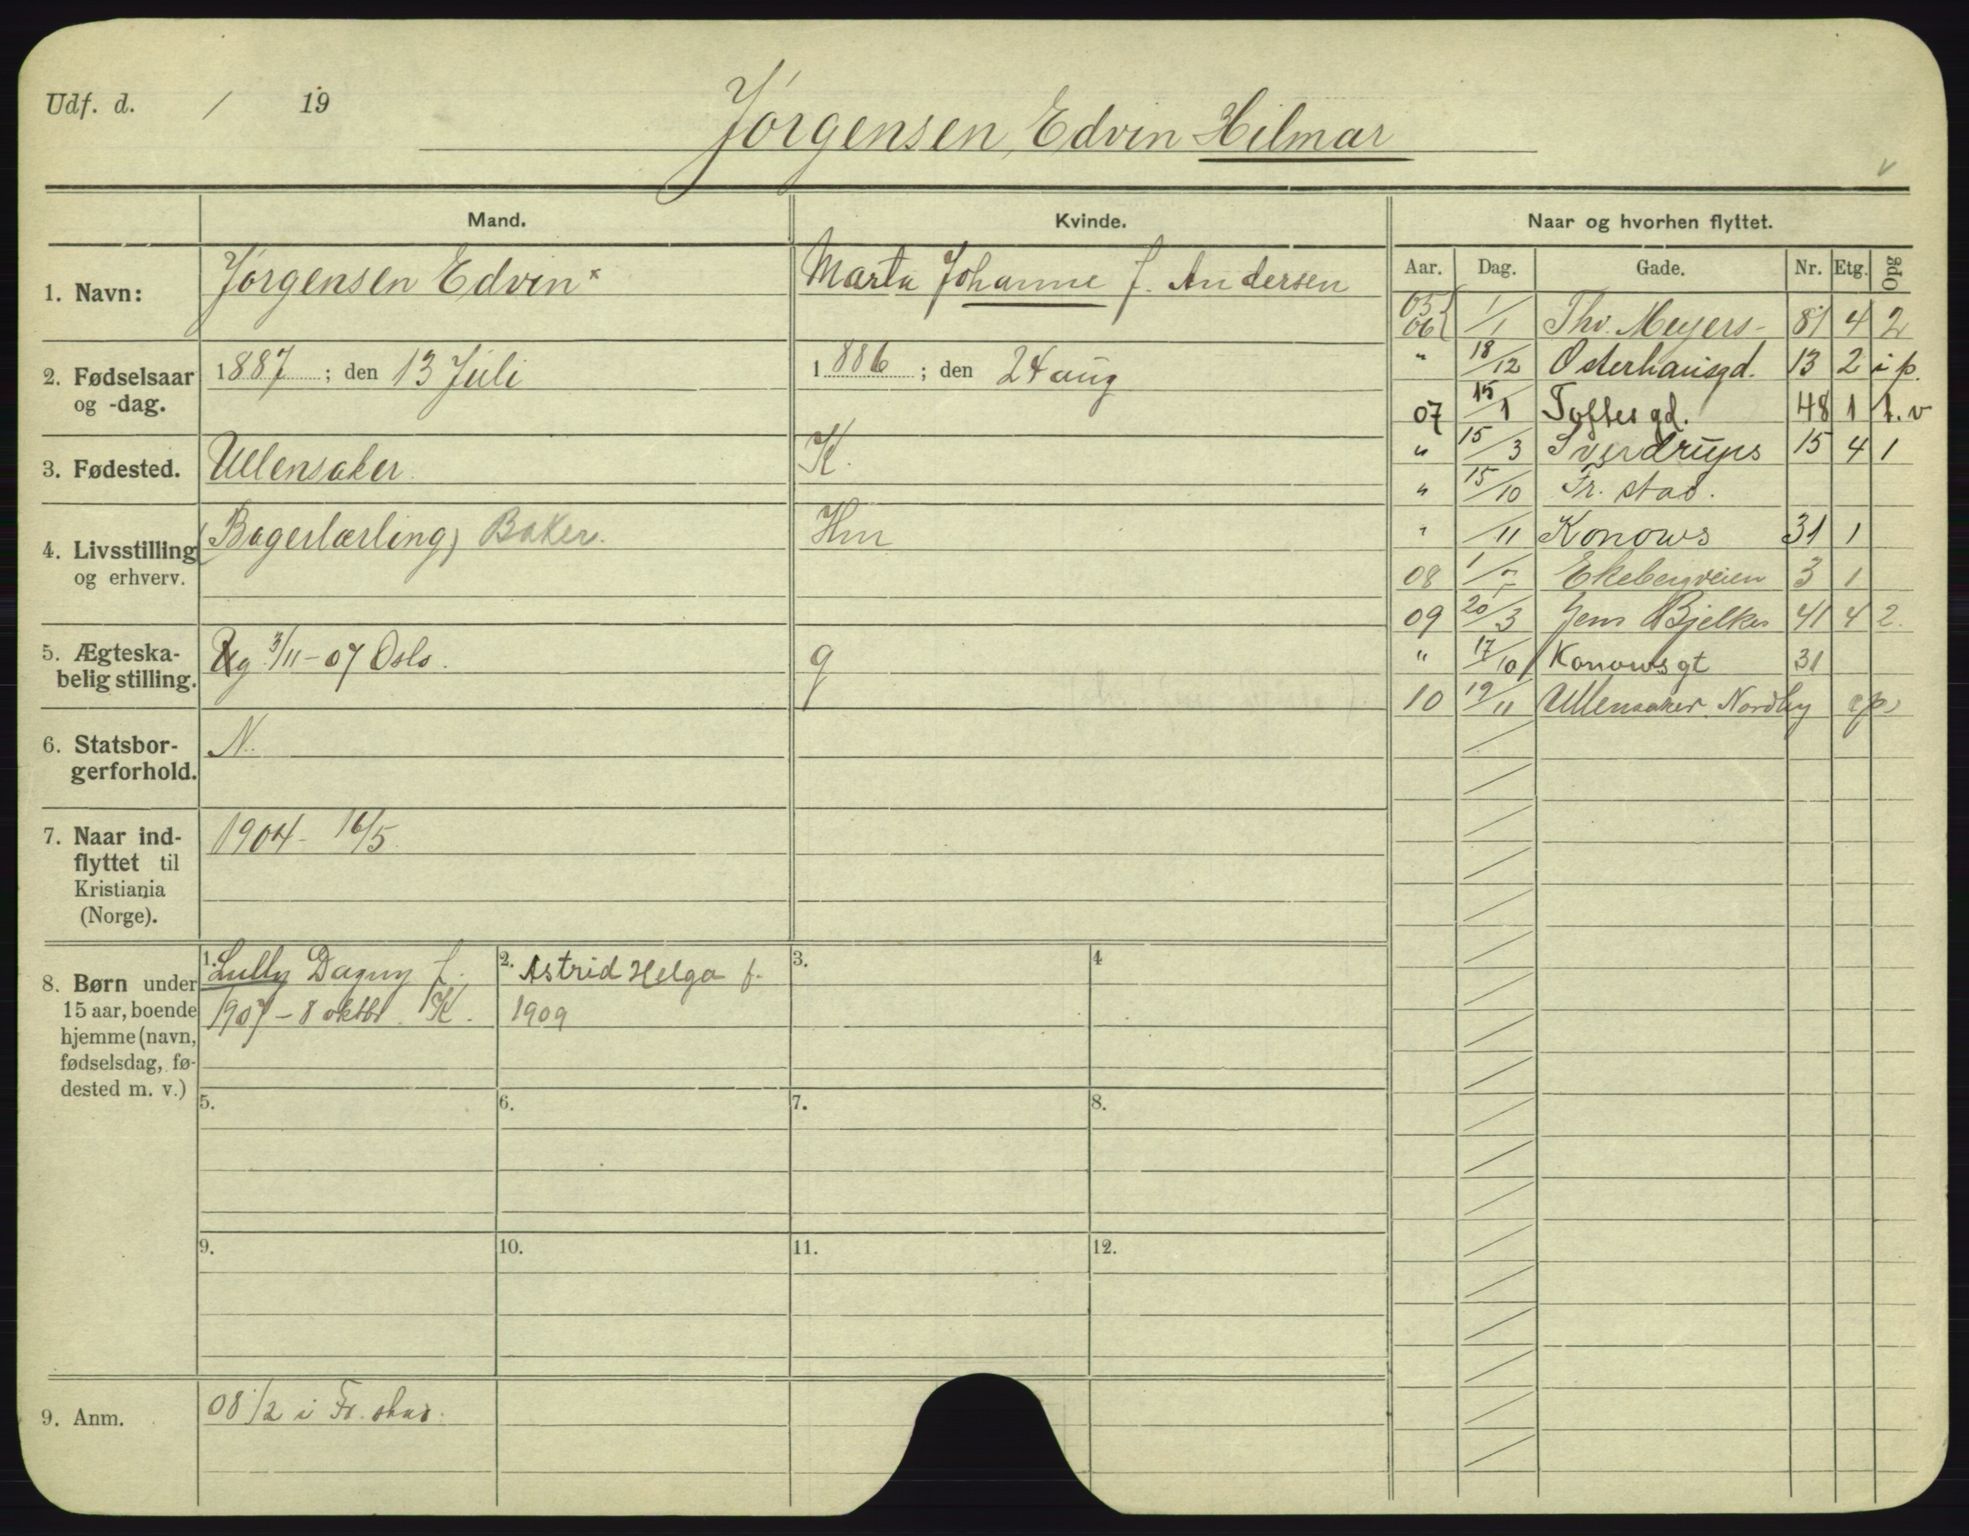 Udf. d. / 19
Jörgensen, Edvin Hilmar
v
Mand.
Kvinde.
Naar og hvorhen flyttet.
1. Navn:
Jörgensen Edvin x
Marta Johanne f. Andersen
2. Fødselsaar
og -dag.
1887 ; den 13 Juli
1886 ; den 24 aug
3. Fødested.
Ullensaker.
K.
4. Livsstilling
og erhverv.
(Bagerlærling) Baker.
Hm
5. Ægteska-
belig stilling.
g 3/11-07 Oslo.
g
6. Statsbor-
gerforhold.
N.
7. Naar ind-
flyttet til
Kristiania
(Norge).
1904 - 16/5.
8. Børn under
15 aar, boende
hjemme (navn,
fødselsdag, fø-
dested m. v.)
1. Lully Dagny f.
1907 - 8 oktbr. K.
2. Astrid Helga f.
1909
3.
4
5.
6.
7.
8.
9.
10.
11.
12.
9. Anm.
08 1/2 i Fr. stad.
Aar. Dag. Gade. Nr. Etg. Opg
05
06 1/1 Thv. Meyers- 81 4 2
" 18/12 Osterhausgd. 13 2 i p.
07 15/1 Toftesgd. 48 1 t.v
" 15/3 Sverdrups 15 4 1
" 15/10 Fr. stad.
" /11 Konows 31 1
08 1/ Ekebergveien 3 1
09 20/3 Jens Bjelkes 41 4 2.
" 17/10 Konowsgt 31
10 19/11 Ullensaker. Nordby